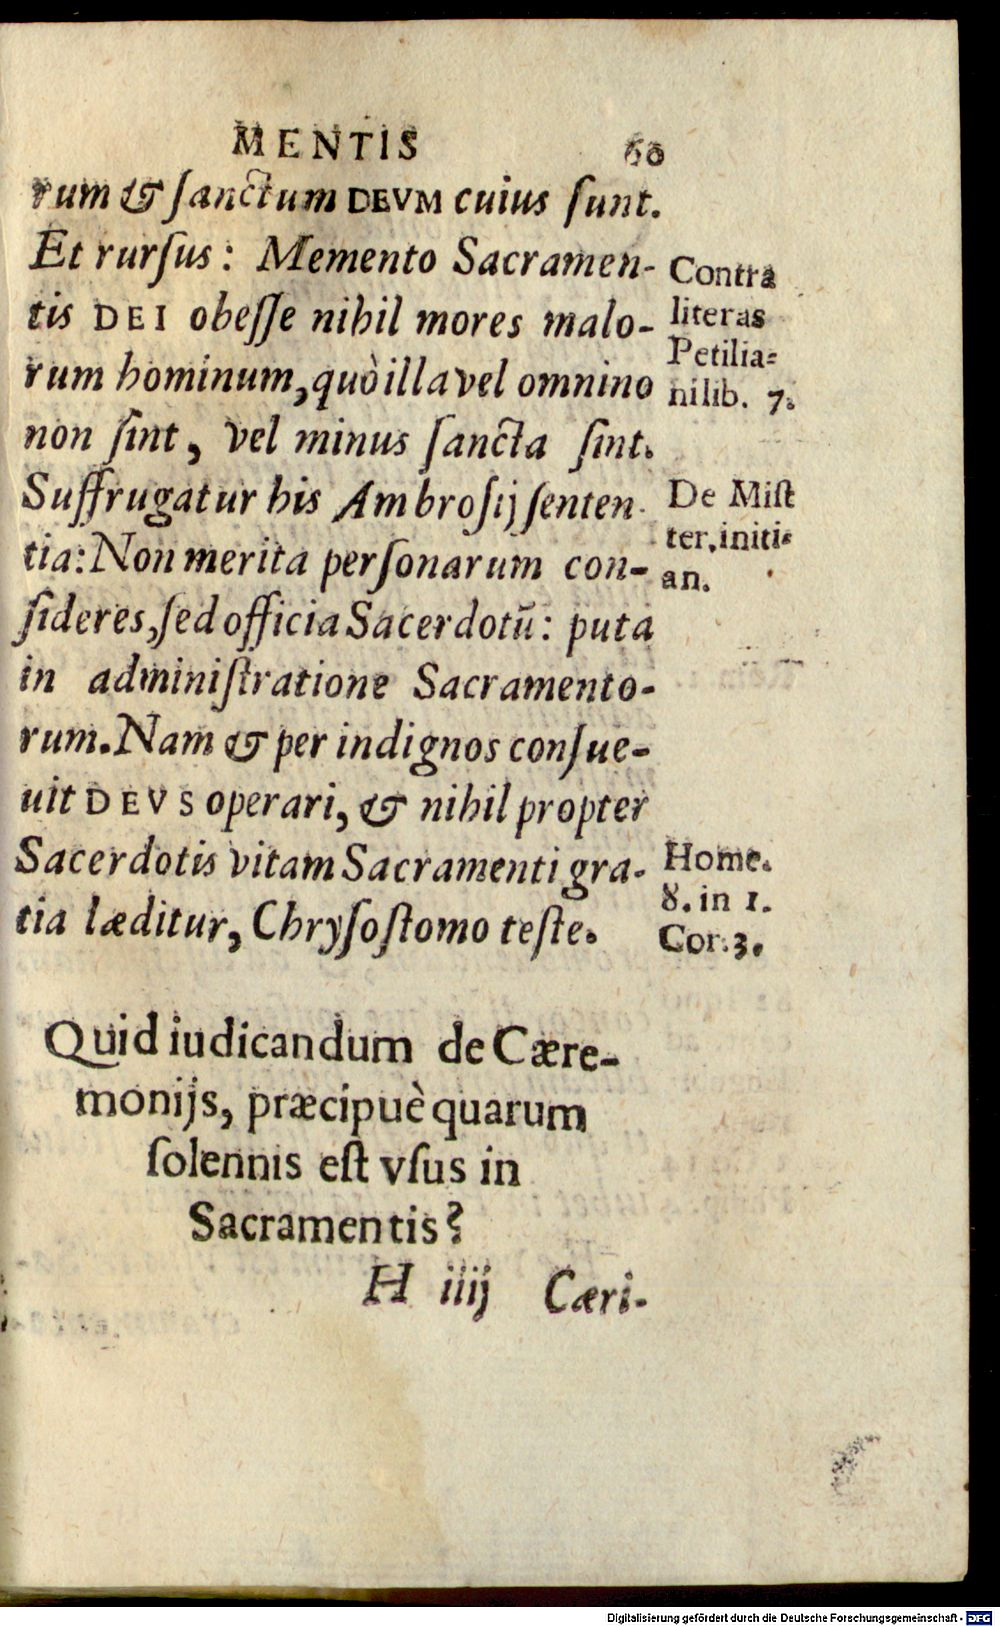 MENTIS 60
rum & ſanctum DEVM cuius ſunt.
Et rurſus: Memento Sacramen-
tis DEI obeſſe nihil mores malo-
rum hominum, quò illa vel omnino
non ſint, vel minus ſancta ſint.
Contra
literas
Petilia-
ni lib. 7.
Suffrugatur his Ambroſij ſenten-
tia: Non merita perſonarum con-
ſideres, ſed officia Sacerdotũ: puta
De Miſt
ter. initi-
an.
in adminiſtratione Sacramento-
rum. Nam & per indignos conſue-
uit DEVS operari, & nihil propter
Sacerdotis vitam Sacramenti gra-
tia læditur, Chryſoſtomo teſte.
Home.
8. in 1.
Cor. 3.
Quid iudicandum de Cære-
monijs, præcipuè quarum
ſolennis eſt vſus in
Sacramentis?
H iiij Cæri-
Digitalisierung gefördert durch die Deutsche Forschungsgemeinschaft - DFG